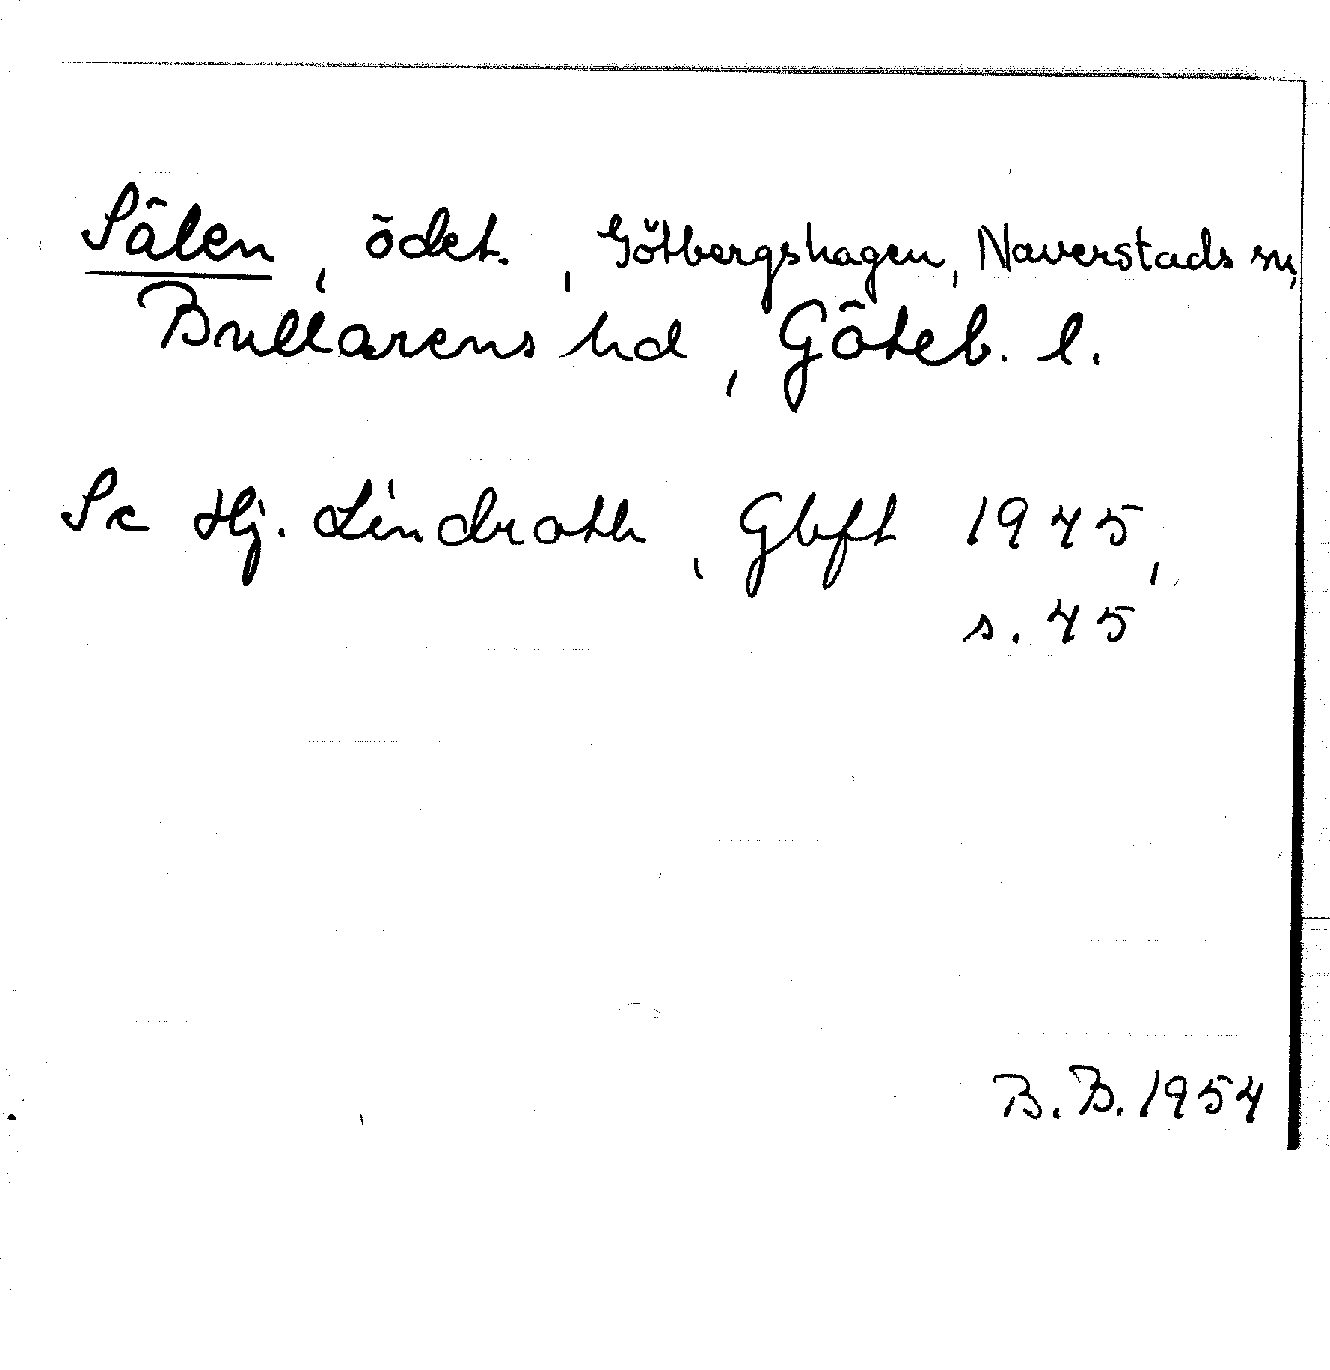 Sälen, ödet., Götbergshagen, Naverstads sn,
Bullarens hd, Göteb. l.
Se Hj. Lindroth, Gbft 1945,
s. 45
B.B. 1954